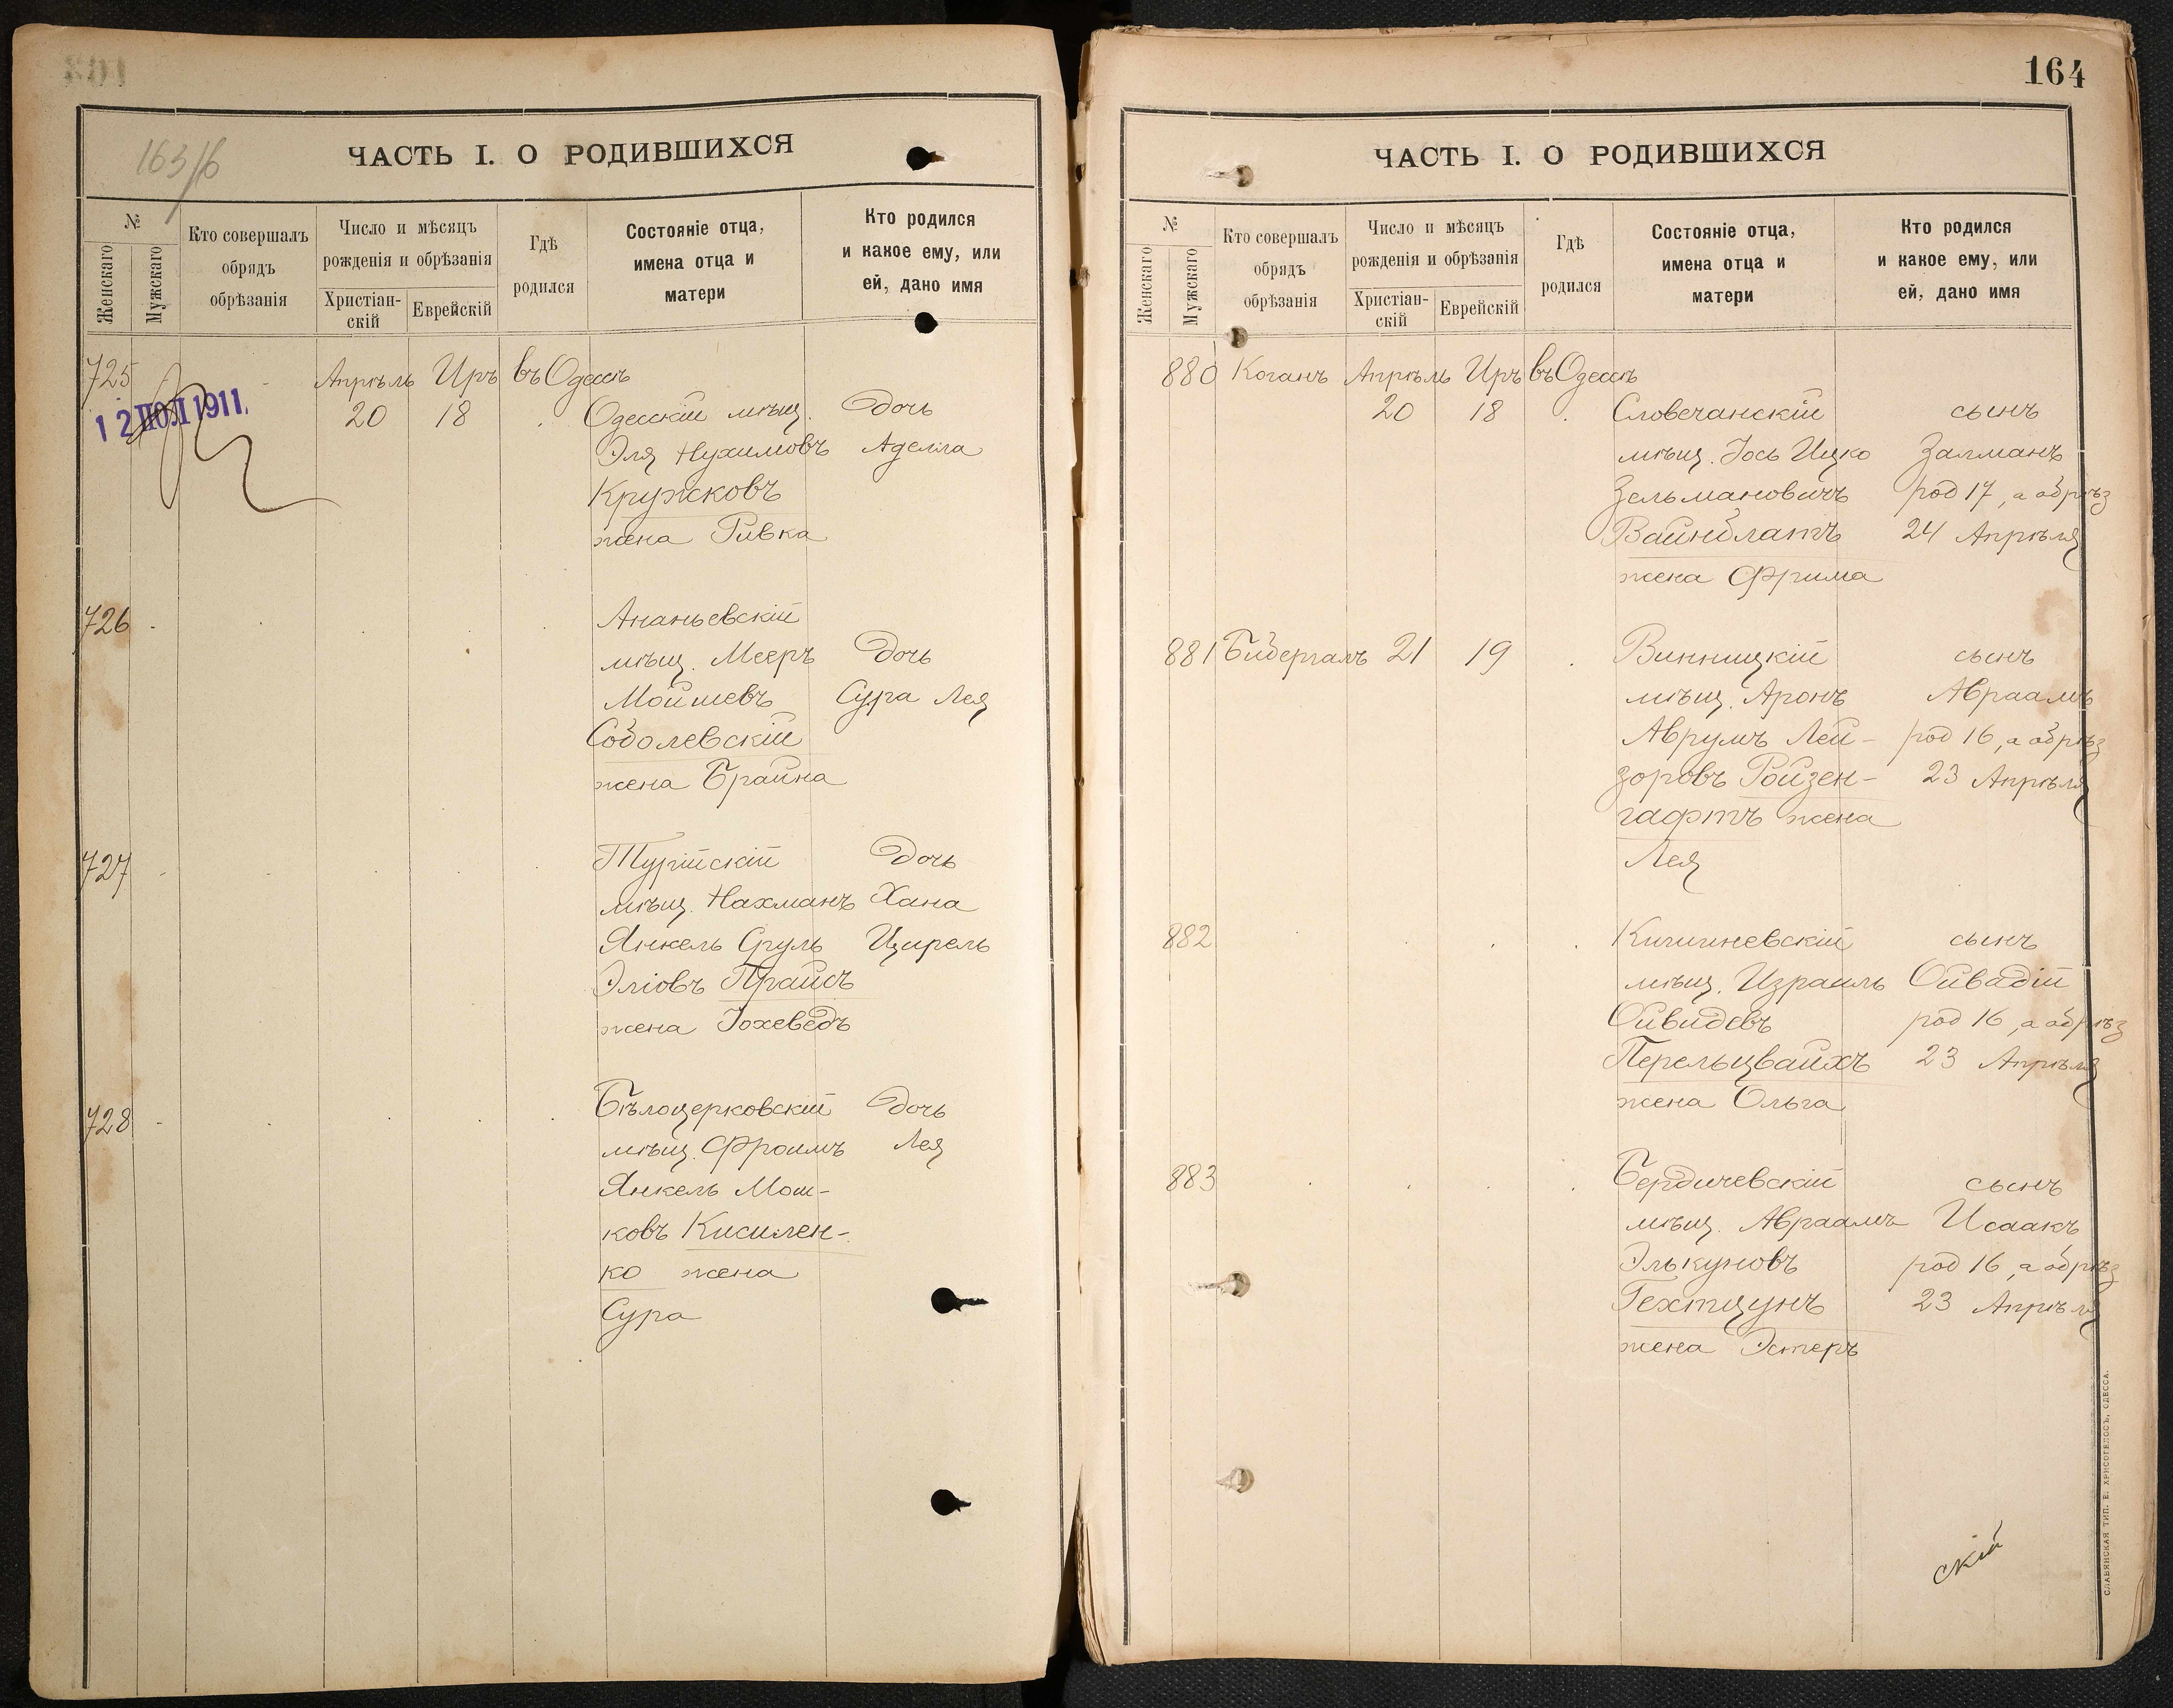 163/б
ЧАСТЬ I. О РОДИВШИХСЯ
№
Женскаго
Мужскаго
Кто совершалъ
обрядъ
обрѣзанія
Число и мѣсяцъ
рожденія и обрѣзанія
Христіан-
скій
Еврейскій
Гдѣ
родился
Состояніе отца,
имена отца и
матери
Кто родился
и какое ему, или
ей, дано имя
725 Апрѣль Иръ въ Одессѣ
12 ІЮЛ 1911.
20 18 Одесскій мѣщ. Дочь
Эля Нухимовъ Аделла
Кружковъ
жена Ривка
726 Ананьевскій
мѣщ. Мееръ Дочь
Мойшевъ Сура Лея
Соболевскій
жена Брайна
727 Турійскій Дочь
мѣщ. Нахманъ Хана
Янкель Сруль Цирель
Эліовъ Прайсъ
жена Іохеведъ
728 Бѣлоцерковскій Дочь
мѣщ. Фроимъ Лея
Янкель Мош-
ковъ Кисилен-
ко жена
Сура
164
ЧАСТЬ I. О РОДИВШИХСЯ
№
Женскаго
Мужскаго
Кто совершалъ
обрядъ
обрѣзанія
Число и мѣсяцъ
рожденія и обрѣзанія
Христіан-
скій
Еврейскій
Гдѣ
родился
Состояніе отца,
имена отца и
матери
Кто родился
и какое ему, или
ей, дано имя
880 Коганъ Апрѣль Иръ въ Одессѣ
20 18 Словечанскій сынъ
мѣщ. Іось Ицко Залманъ
Зельмановичъ род 17, а обрѣз
Вайнблатъ 24 Апрѣля
жена Фрима
881 Бидергалъ 21 19 Винницкій сынъ
мѣщ. Аронъ Авраамъ
Аврумъ Лей- род 16, а обрѣз
зоровъ Ройзен- 23 Апрѣля
гафтъ жена
Лея
882 Кишиневскій сынъ
мѣщ. Израиль Ойвадій
Ойвидевъ род 16, а обрѣз
Перельцвайхъ 23 Апрѣля
жена Ольга
883 Бердичевскій сынъ
мѣщ. Авраамъ Исаакъ
Элькуновъ род 16, а обрѣз
Гехтцунъ 23 Апрѣля
жена Эстеръ
скій
СЛАВЯНСКАЯ ТИП. Е. ХРИСОГЕЛОСЪ, ОДЕССА.